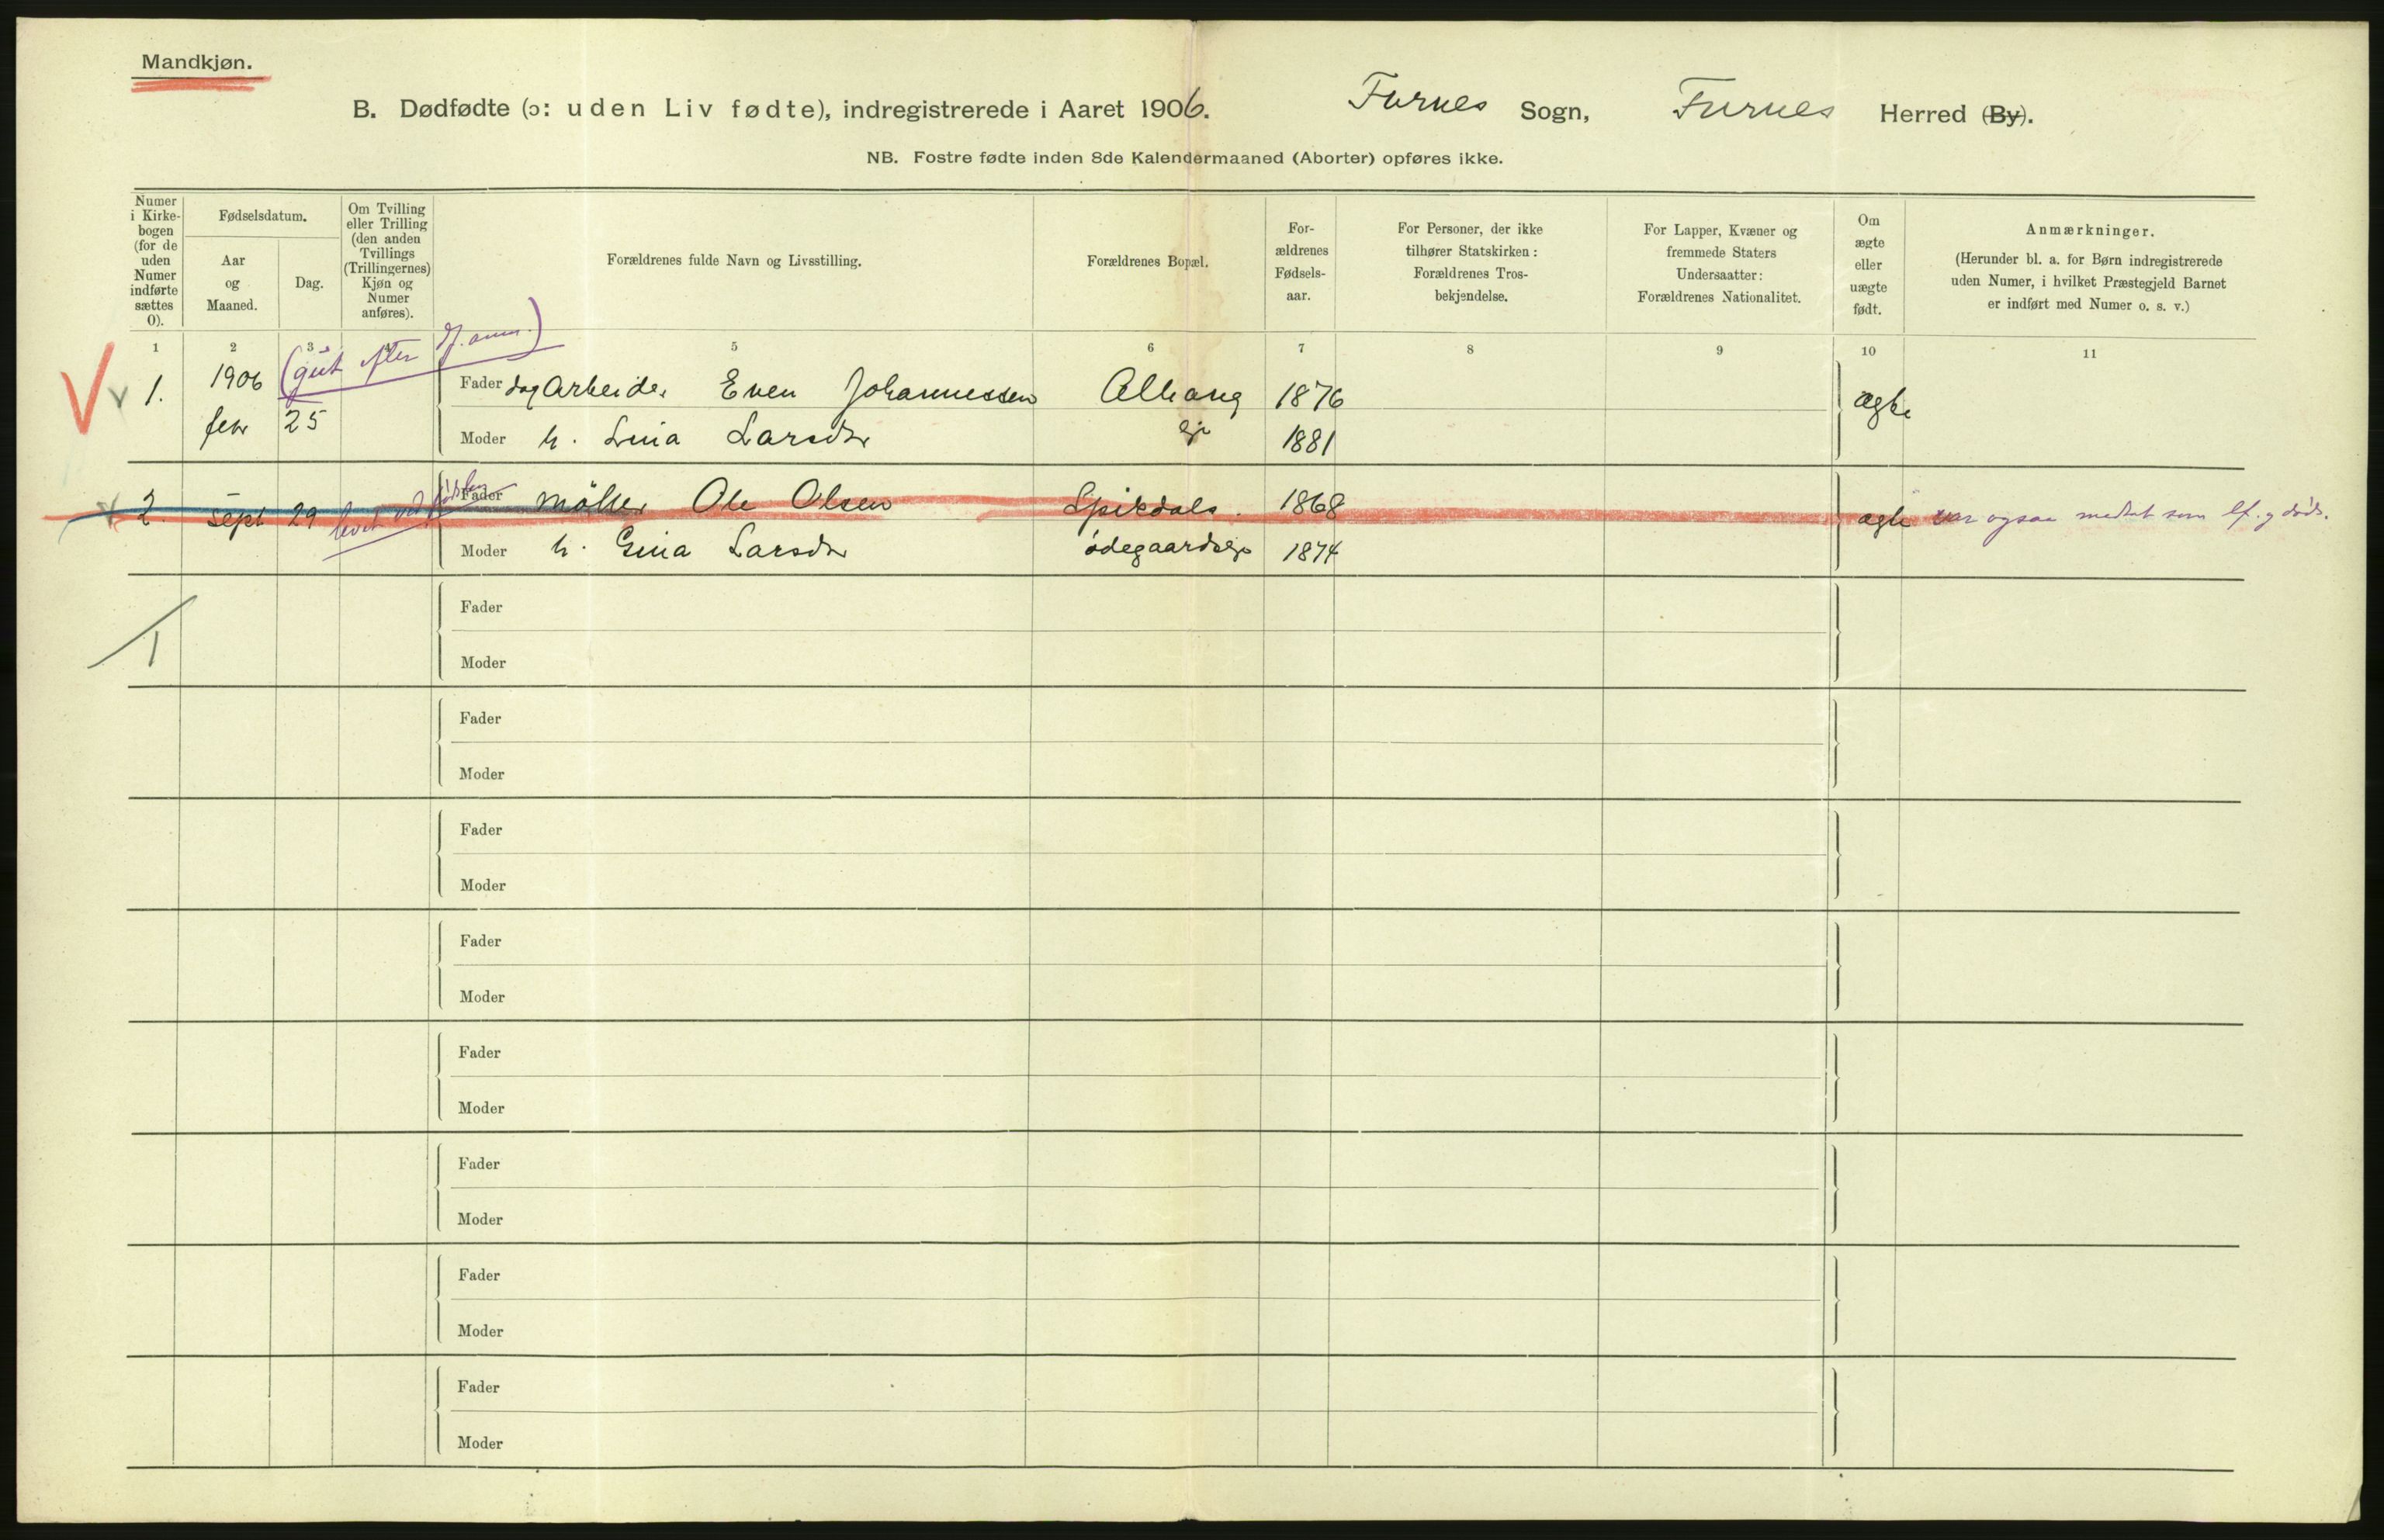 Mandkjøn.
B. Dødfødte (ɔ: uden Liv fødte), indregistrerede i Aaret 1906. Furnes Sogn, Furnes Herred (By).
NB. Fostre fødte inden 8de Kalendermaaned (Aborter) opføres ikke.
Numer i Kirke-bogen (for de uden Numer indførte sættes 0).
Fødselsdatum.
Aar og Maaned.
Dag.
Om Tvilling eller Trilling (den anden Tvillings (Trillingernes) Kjøn og Numer anføres).
Forældrenes fulde Navn og Livsstilling.
Forældrenes Bopæl.
For-ældrenes Fødsels-aar.
For Personer, der ikke tilhører Statskirken: Forældrenes Tros-bekjendelse.
For Lapper, Kvæner og fremmede Staters Undersaatter: Forældrenes Nationalitet.
Om ægte eller uægte født.
Anmærkninger.
(Herunder bl. a. for Børn indregistrerede uden Numer, i hvilket Præstegjeld Barnet er indført med Numer o. s. v.)
1 2 3 5 6 7 8 9 10 11
(gut efter J. anm.)
1. 1906 Fader dagarbeider Even Johannessen 1876 ægte
febr 25 Moder h. Lina Larsdtr eje 1881
2. sept 29 levet ved fødslen Fader møller Ole Olsen Spikdals. 1868 ægte var ogsaa medtat som lf. og døds.
Moder h. Gina Larsdtr ødegaardseje 1874
1
Fader
Moder
Fader
Moder
Fader
Moder
Fader
Moder
Fader
Moder
Fader
Moder
Fader
Moder
Fader
Moder